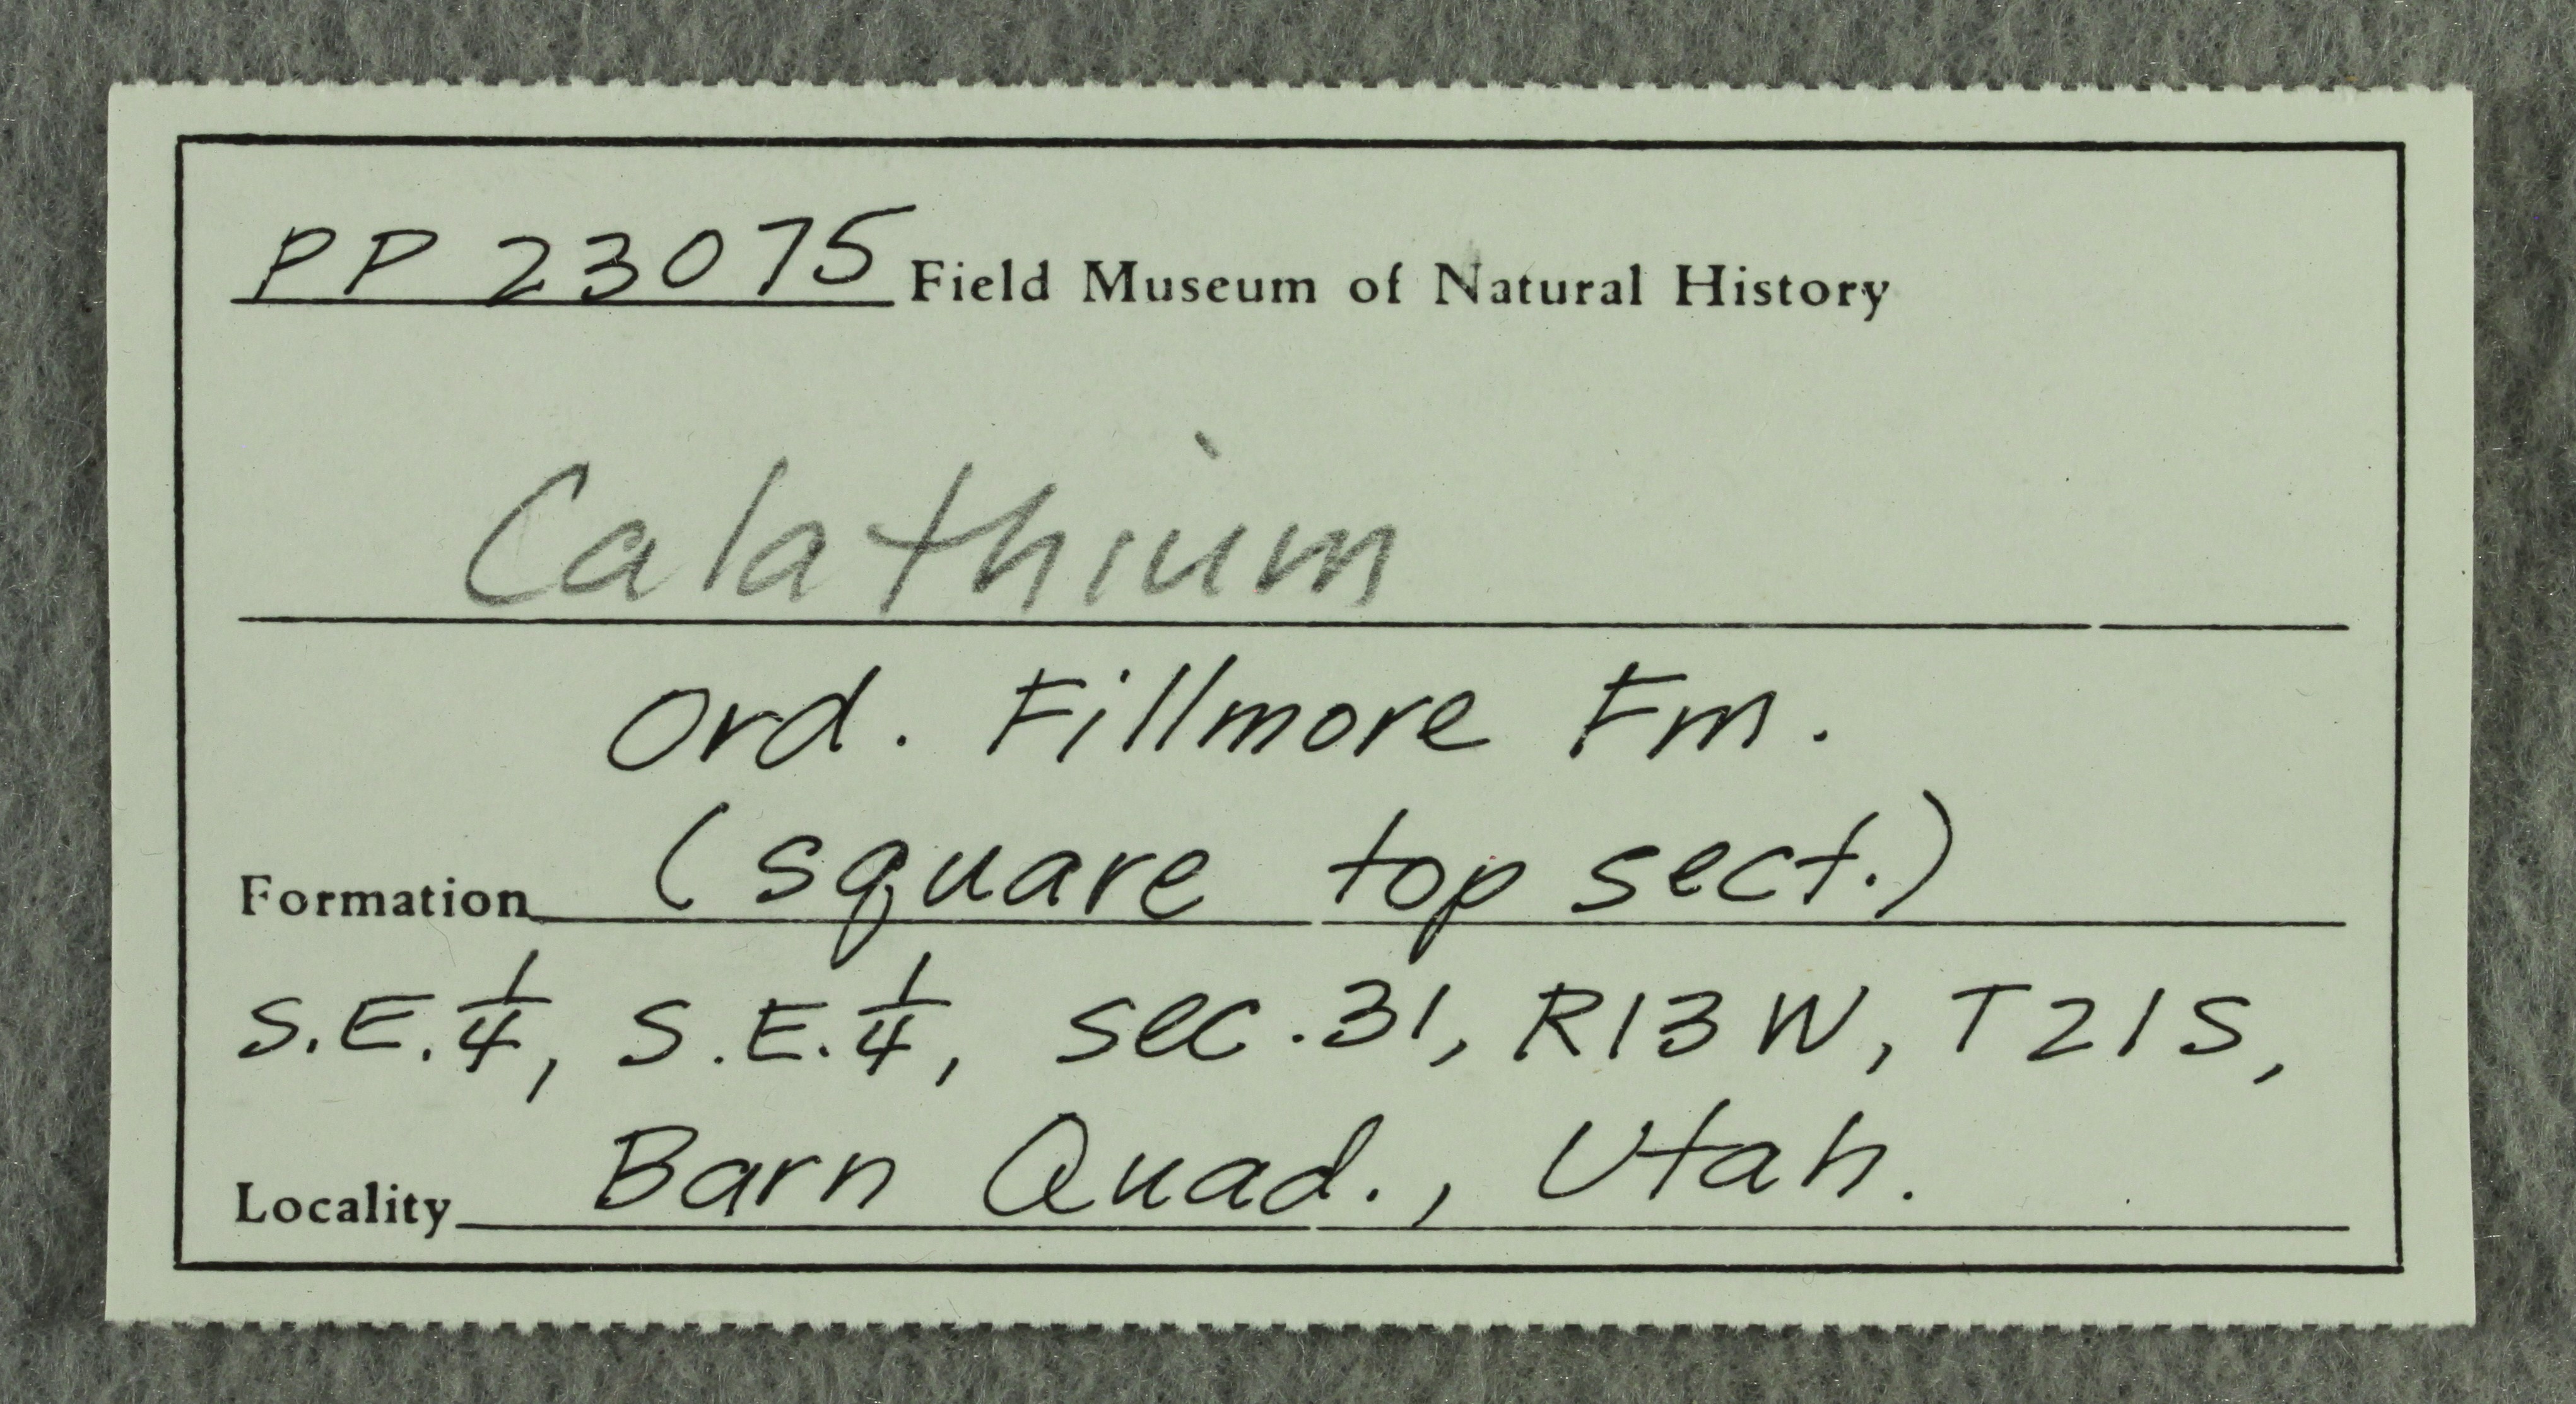 PP 23075 Field Museum of Natural History
Calathium
Ord. Fillmore Fm.
Formation (square top sect.)
S.E. 1/4, S.E. 1/4, sec. 31, R13W, T21S,
Locality Barn Quad., Utah.